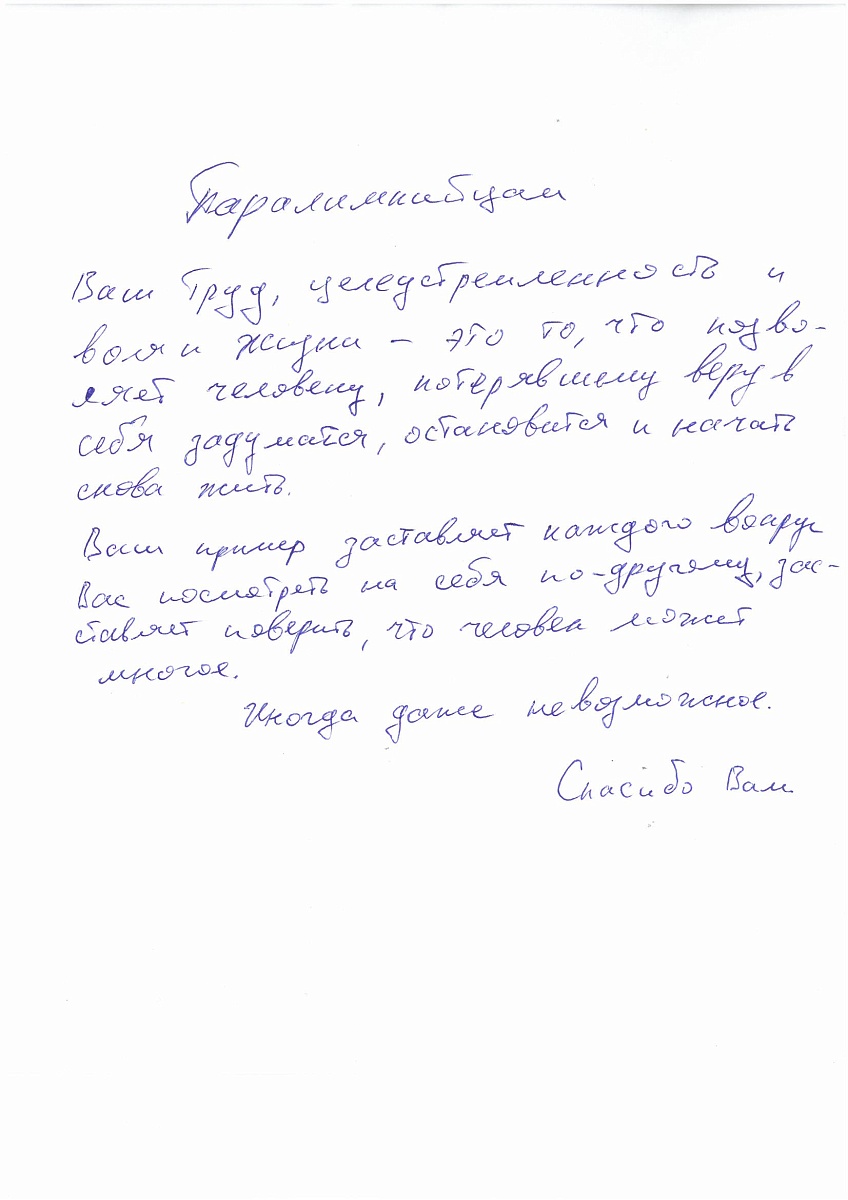 Паралимпийцам
Ваш труд, целеустремленность и
воля к жизни – это то, что позво-
ляет человеку, потерявшему веру в
себя задуматся, остановится и начать
снова жить.
Ваш пример заставляет каждого вокруг
Вас посмотреть на себя по-другому, зас-
тавляет поверить, что человек может
многое.
Иногда даже невозможное.
Спасибо Вам